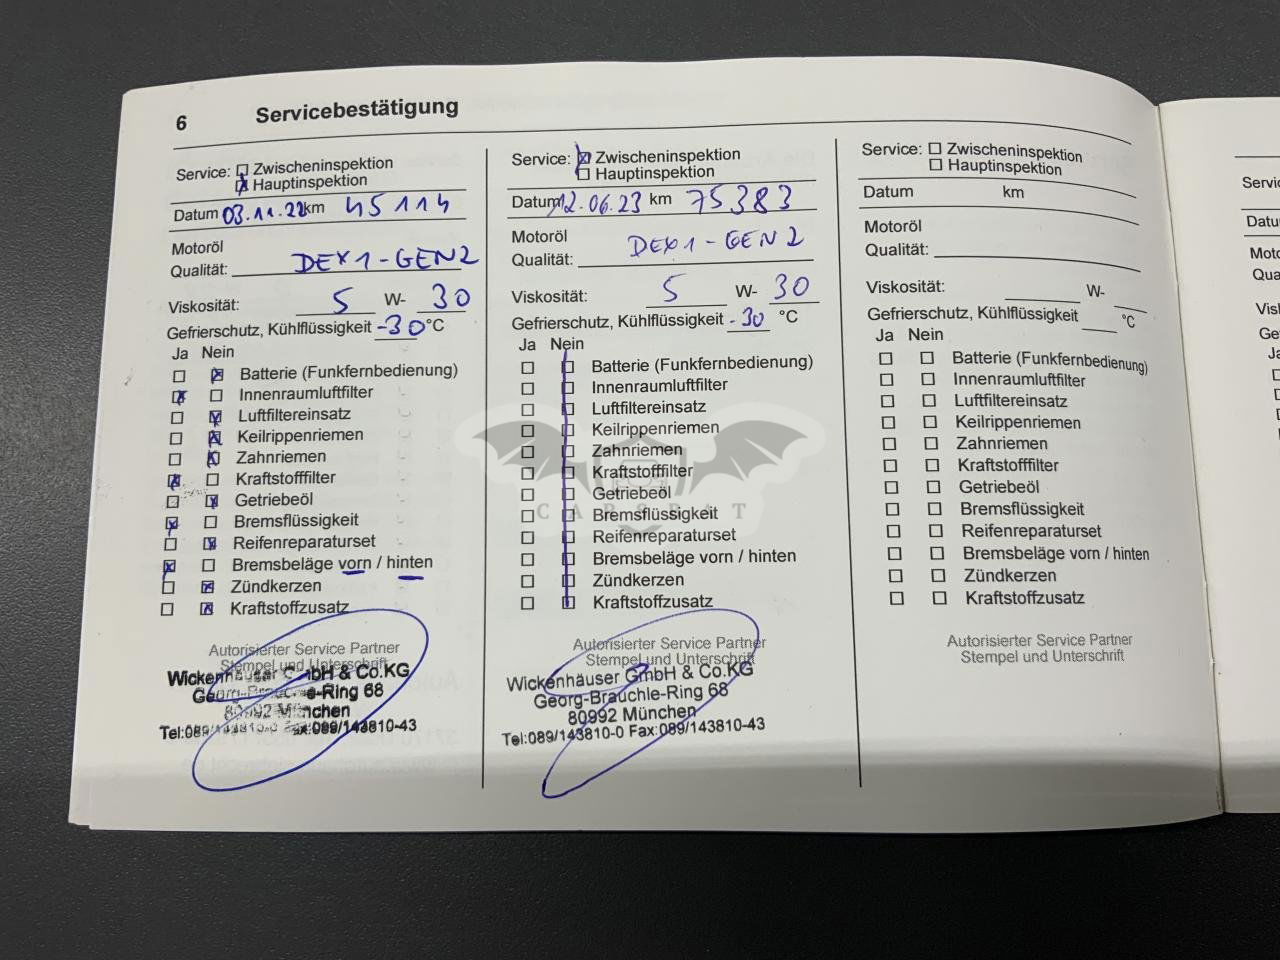 6 Servicebestätigung
Service: Zwischeninspektion
Hauptinspektion
Datum 03.11.22 km 45114
Motoröl
Qualität: DEX1-GEN2
Viskosität: 5 W- 30
Gefrierschutz, Kühlflüssigkeit -30 °C
Ja Nein
Batterie (Funkfernbedienung)
Innenraumluftfilter
Luftfiltereinsatz
Keilrippenriemen
Zahnriemen
Kraftstofffilter
Getriebeöl
Bremsflüssigkeit
Reifenreparaturset
Bremsbeläge vorn / hinten
Zündkerzen
Kraftstoffzusatz
Autorisierter Service Partner
Stempel und Unterschrift
Wickenhäuser GmbH & Co.KG
Georg-Brauchle-Ring 68
80992 München
Tel:089/143810-0 Fax:089/143810-43
Service: Zwischeninspektion
Hauptinspektion
Datum 12.06.23 km 75383
Motoröl
Qualität: DEX1-GEN2
Viskosität: 5 W- 30
Gefrierschutz, Kühlflüssigkeit -30 °C
Ja Nein
Batterie (Funkfernbedienung)
Innenraumluftfilter
Luftfiltereinsatz
Keilrippenriemen
Zahnriemen
Kraftstofffilter
Getriebeöl
Bremsflüssigkeit
Reifenreparaturset
Bremsbeläge vorn / hinten
Zündkerzen
Kraftstoffzusatz
Autorisierter Service Partner
Stempel und Unterschrift
Wickenhäuser GmbH & Co.KG
Georg-Brauchle-Ring 68
80992 München
Tel:089/143810-0 Fax:089/143810-43
Service: Zwischeninspektion
Hauptinspektion
Datum km
Motoröl
Qualität:
Viskosität: W-
Gefrierschutz, Kühlflüssigkeit °C
Ja Nein
Batterie (Funkfernbedienung)
Innenraumluftfilter
Luftfiltereinsatz
Keilrippenriemen
Zahnriemen
Kraftstofffilter
Getriebeöl
Bremsflüssigkeit
Reifenreparaturset
Bremsbeläge vorn / hinten
Zündkerzen
Kraftstoffzusatz
Autorisierter Service Partner
Stempel und Unterschrift
CARSBAT